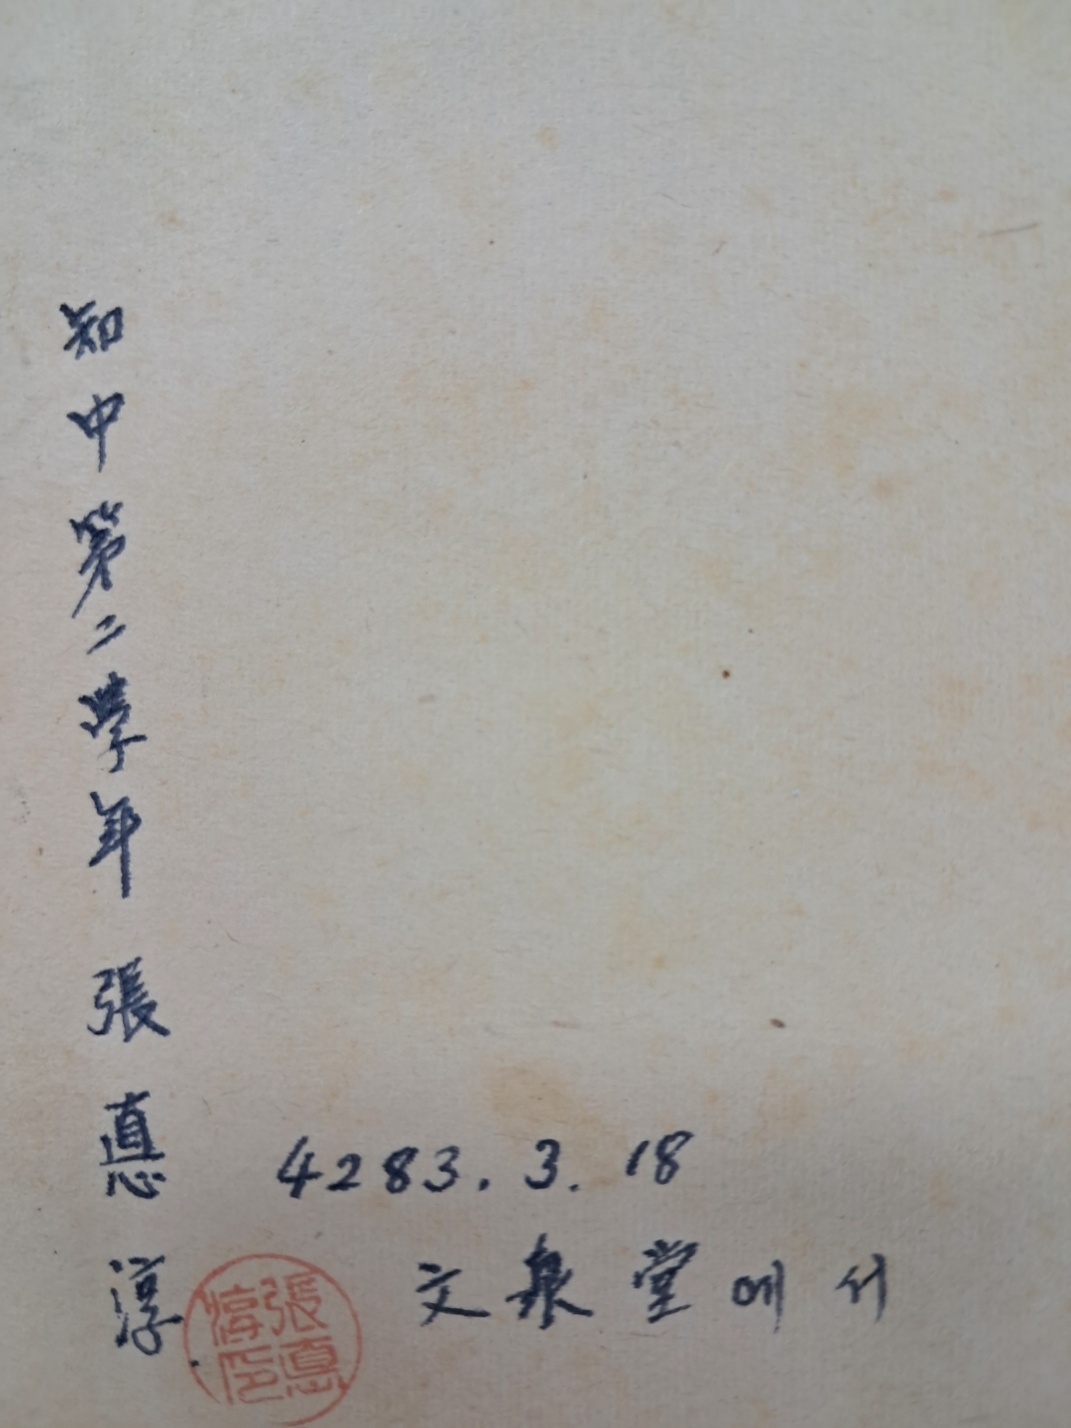 知中第二學年 張悳淳
4283. 3. 18
文泉堂에서
張悳
淳印